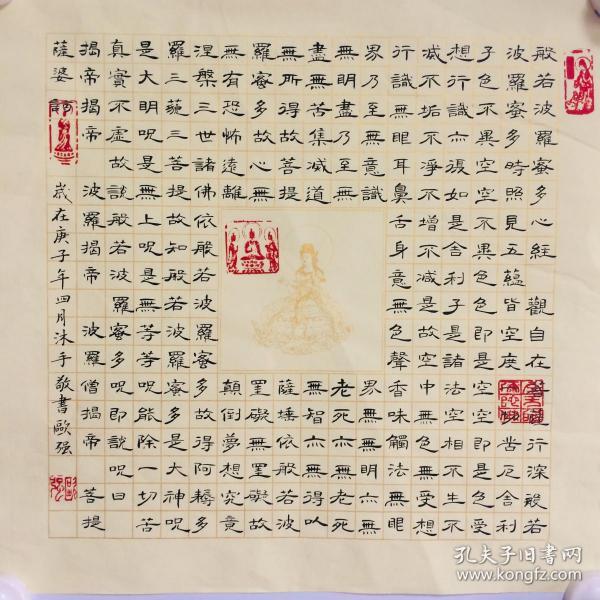 般若波羅蜜多心經觀自在菩薩行深般若
波羅蜜多時照見五蘊皆空度一切苦厄舍利
子色不異空空不異色色即是空空即是色受
想行識亦復如是舍利子是諸法空相不生不
滅不垢不淨不增不減是故空中無色無受想
行識無眼耳鼻舌身意無色聲香味觸法無眼
界乃至無意識界無無明亦無
無明盡乃至無老死亦無老死
盡無苦集滅道無智亦無得以
無所得故菩提薩埵依般若波
羅蜜多故心無罣礙無罣礙故
無有恐怖遠離顛倒夢想究竟
涅槃三世諸佛依般若波羅蜜多故得阿耨多
羅三藐三菩提故知般若波羅蜜多是大神呪
是大明呪是無上呪是無等等呪能除一切苦
真實不虛故說般若波羅蜜多呪即說呪曰
揭帝揭帝 波羅揭帝 波羅僧揭帝 菩提
薩婆訶
歲在庚子年四月沐手敬書歐强
孔夫子旧书网
www.kongfz.com